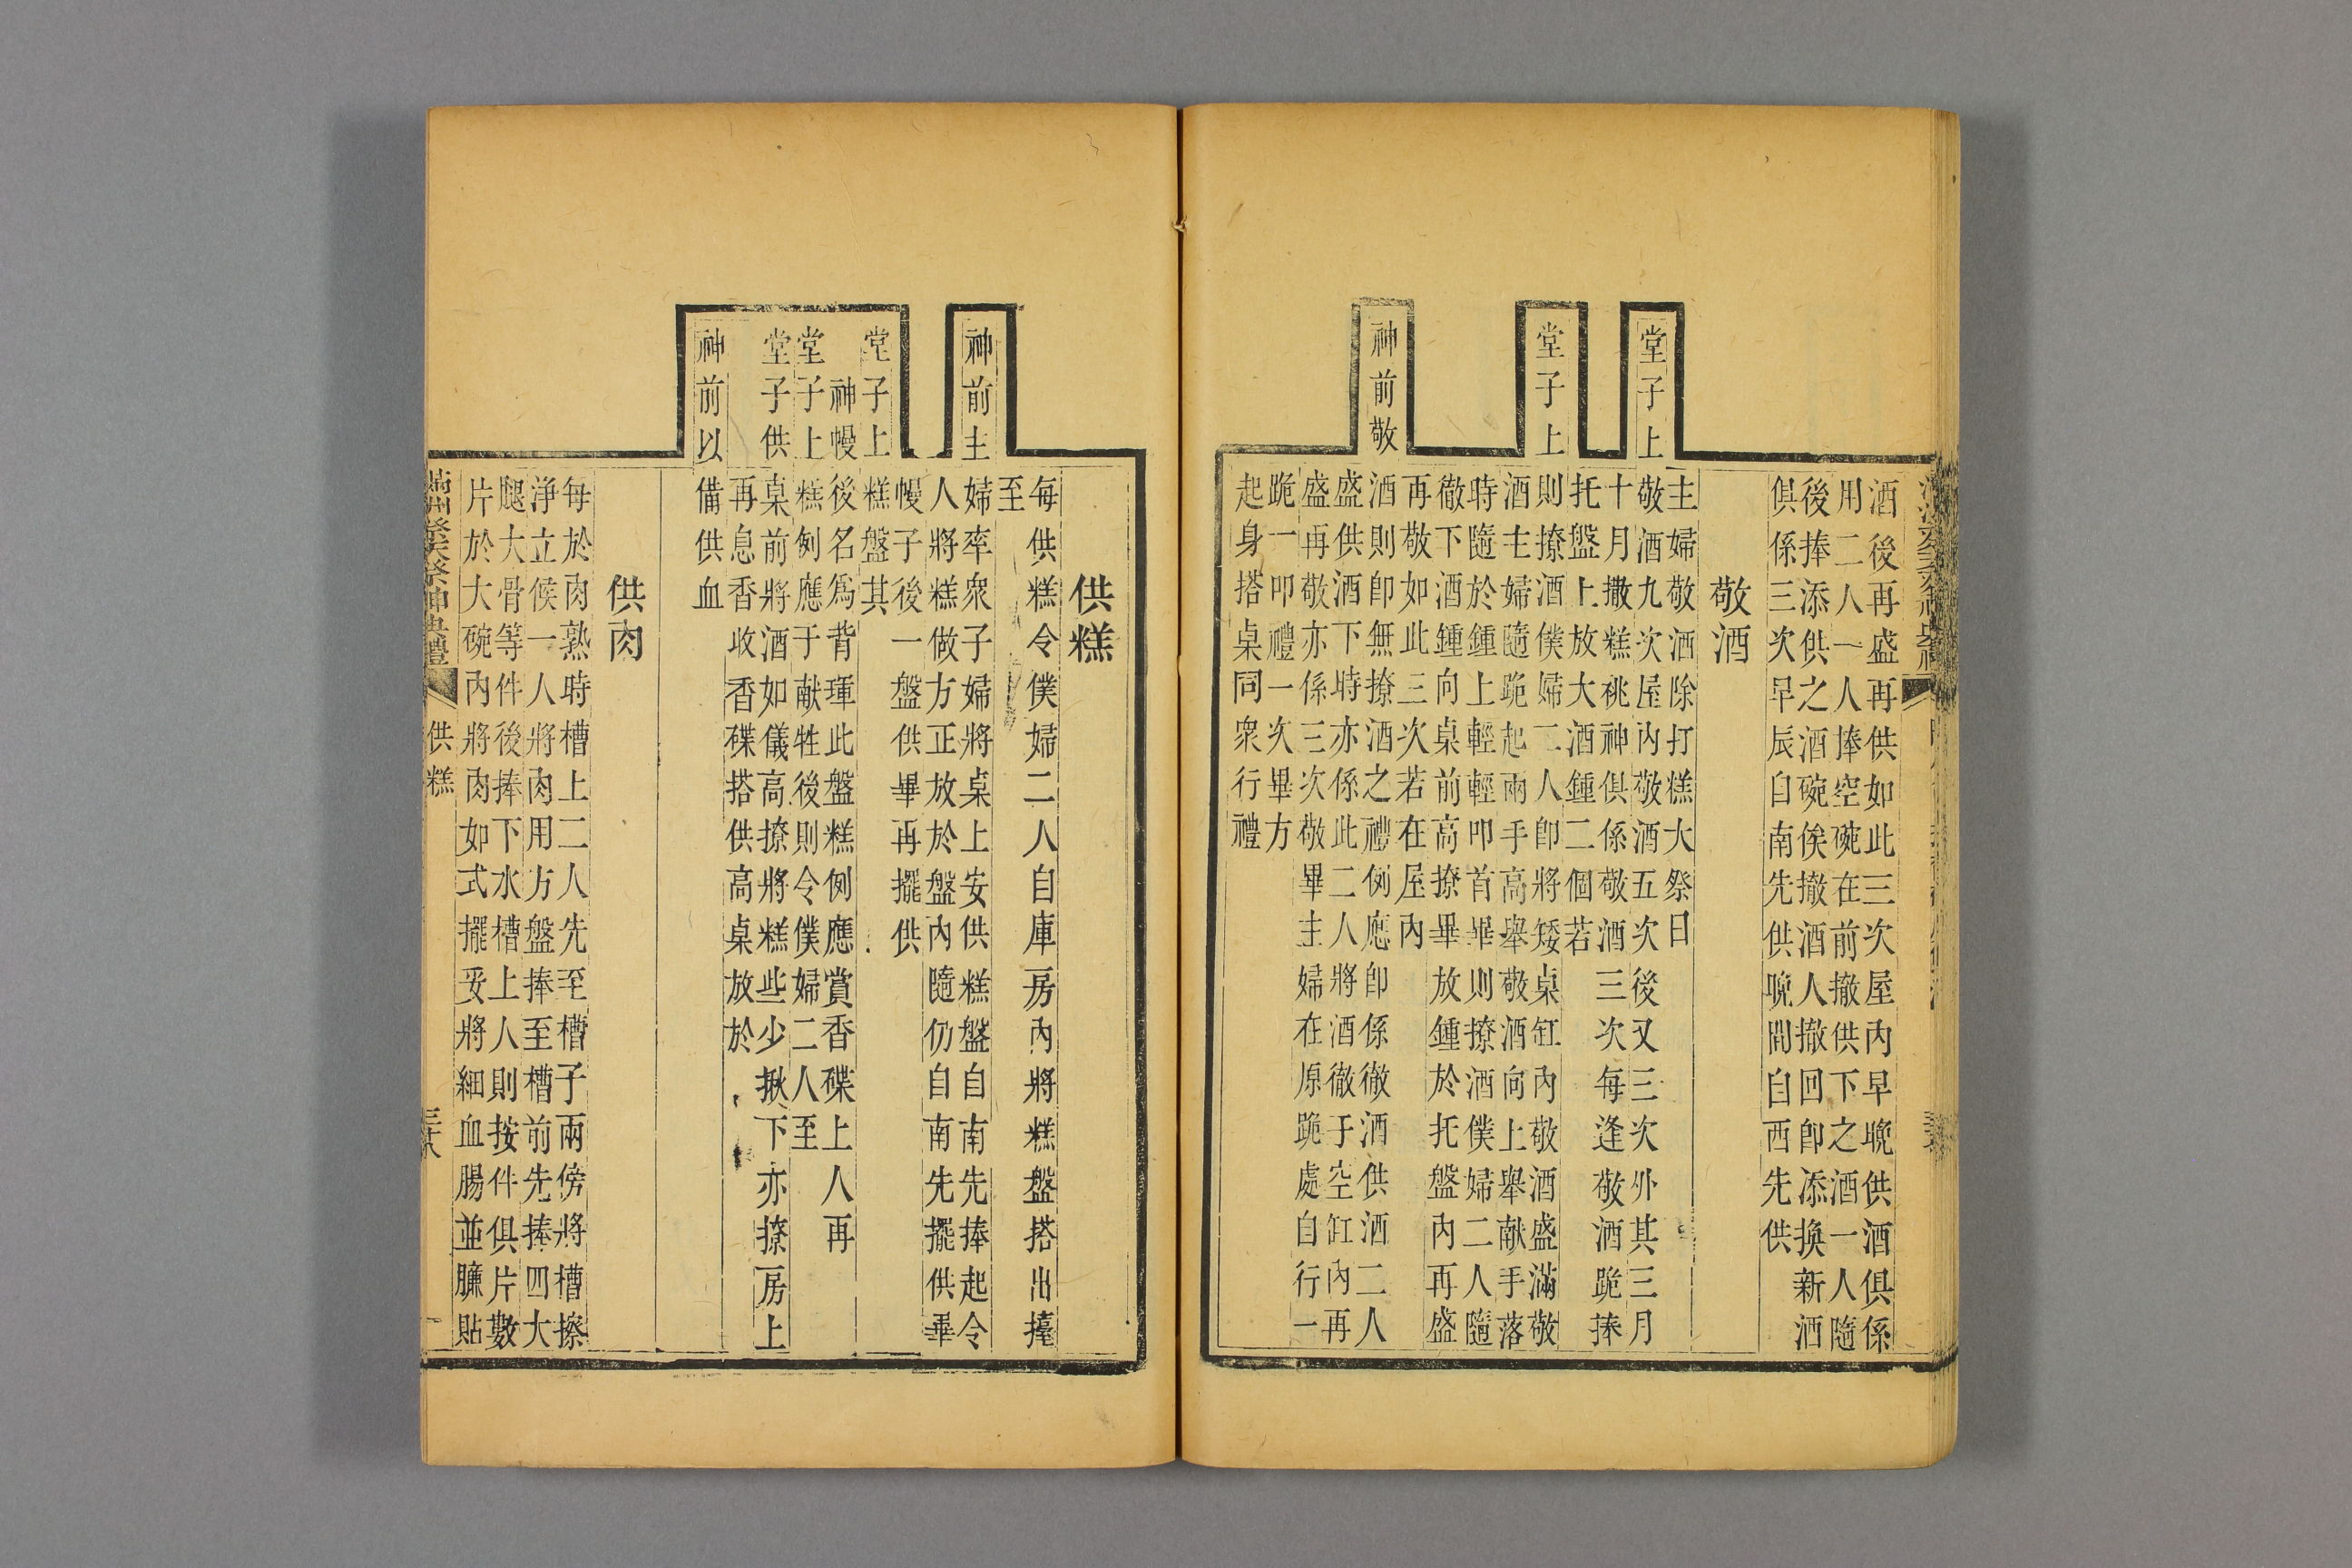 酒後再盛再供如此三次屋內早晚供酒俱係
用二人一人捧空碗在前撤供下之酒一人隨
後捧添供之酒碗俟撤酒人撤回卽添換新酒
俱係三次早辰自南先供晚間自西先供
敬酒
主婦敬酒除打糕大祭日
堂子上敬酒九次屋內敬酒五次後又三次外其三月
十月撒糕祧神俱係敬酒三次每逢敬酒跪捧
托盤上放大酒鍾二個若
堂子上則撩酒僕婦二人卽將矮桌缸內敬酒盛滿敬
酒主婦隨跪起兩手高舉敬酒向上舉献手落
時隨於鍾上輕輕叩首畢則撩酒僕婦二人隨
徹下酒鍾向桌前高撩畢放鍾於托盤內再盛
再敬如此三次若在屋內
神前敬酒則卽無撩酒之禮例應卽係徹酒供酒二人
盛供酒下時亦係此二人將酒徹于空缸內再
盛再敬亦係三次敬畢主婦在原跪處自行一
跪一叩禮一次畢方
起身搭桌同衆行禮
供糕
每供糕令僕婦二人自庫房內將糕盤搭出擡
至
神前主婦率衆子婦將桌上安供糕盤自南先捧起令
人將糕做方正放於盤內隨仍自南先擺供畢
幔子後一盤供畢再擺供
堂子上糕盤其
神幔後名爲背琿此盤糕例應賞香碟上人再
堂子上糕例應于献牲後則令僕婦二人至
堂子供桌前將酒如儀高撩將糕些少揪下亦撩房上
再息香收香碟搭供高桌放於
神前以備供血
供肉
每於肉熟時槽上二人先至槽子兩傍將槽擦
淨立候一人將肉用方盤捧至槽前先捧四大
腿大骨等件後捧下水槽上人則按件俱片數
片於大碗內將肉如式擺妥將細血腸並臁貼
滿洲祭天祭神典禮 供糕 三十八